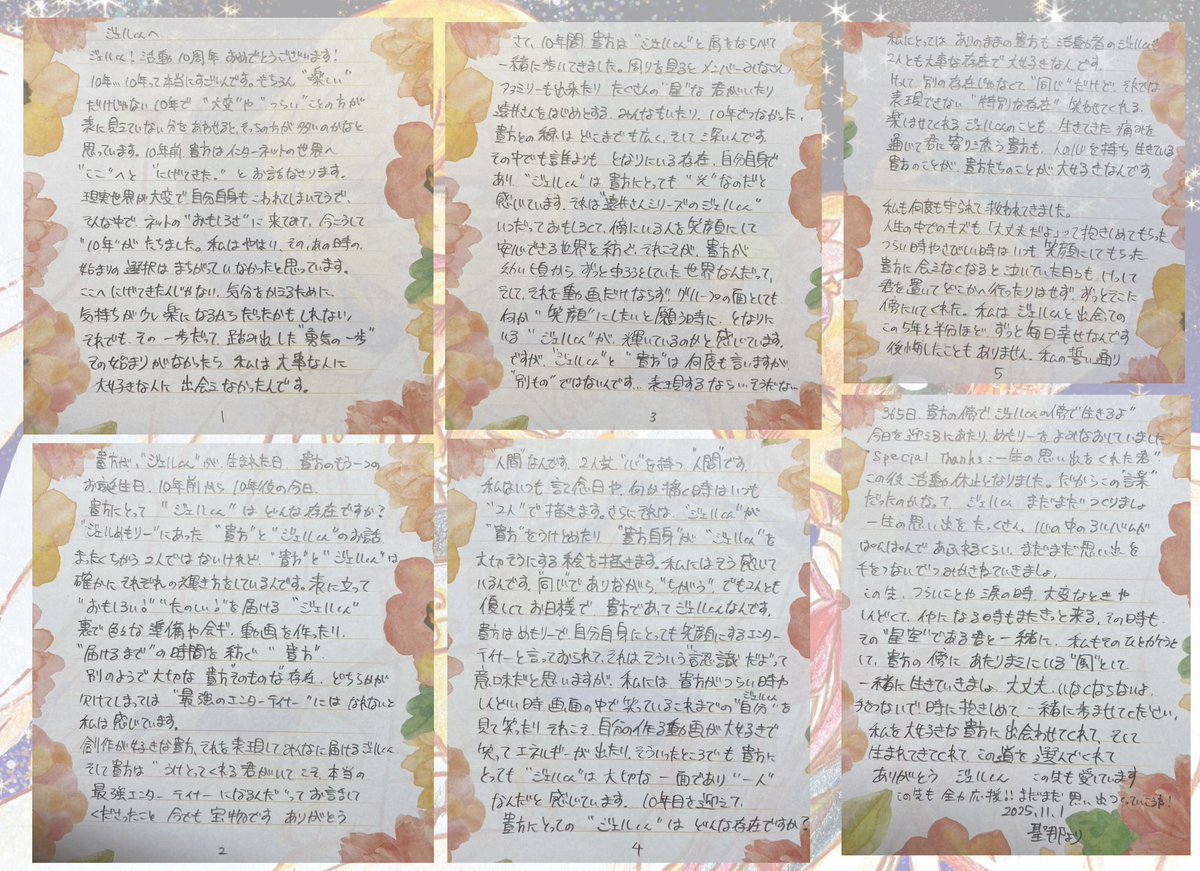 ジェルくんへ
ジェルくん！活動10周年おめでとうございます！
10年…10年って本当にすごいんです。もちろん"楽しい"
だけじゃない10年で"大変"や"つらい"ことの方が
表に見えていない分をあわせると、そっちの方が多いのかなと
思っています。10年前、貴方はインターネットの世界へ
"ここ"へと"にげてきた。"とお話なさります。
現実世界が大変で自分自身もこわれてしまいそうで、
そんな中でネットの"おもしろさ"に来てみて、今こうして
"10年"がたちました。私はやはり、その、あの時の、
始まりの選択はまちがっていなかったと思っています。
ここへにげてきたんじゃない、気分をかえるために、
気持ちが少し楽になるからだったかもしれない、
それでも、その一歩だって踏み出した"勇気の一歩"
その始まりがなかったら私は大事な人に
大好きな人に出会えなかったんです。
1
貴方が、"ジェルくん"が、生まれた日、貴方のもう一つの
お誕生日、10年前から10年後の今日、
貴方にとって"ジェルくん"はどんな存在ですか？
"ジェルめもりー"にあった"貴方"と"ジェルくん"のお話
まったくちがう2人ではないけれど、"貴方"と"ジェルくん"は
確かにそれぞれの輝き方をしているんです。表に立って
"おもしろい！""たのしい！"を届ける"ジェルくん"
裏で色々な準備や会ギ、動画を作ったり、
"届けるまで"の時間を紡ぐ"貴方"
別のようで大切な"貴方そのもの"な存在、どちらかが
欠けてしまっては"最強のエンターテイナー"にはなれないと
私は感じています。
創作が好きな貴方、それを表現してみんなに届けるジェルくん
そして貴方は"うけとってくれる君がいてこそ、本当の
最強エンターテイナーになるんだ"ってお話して
くださったこと今でも宝物ですありがとう
2
さて、10年間貴方は"ジェルくん"と肩をならべて
一緒に歩いてきました。周りを見るとメンバーみなさん、
ファミリーも出来たりたくさんの"星"な君がいたり
遠井さんをはじめとする、みんなもいたり、10年でつながった、
貴方との線はどこまでも広く、そして深いんです。
その中でも誰よりもとなりにいる存在、自分自身で
あり、"ジェルくん"は貴方にとっても"光"なのだと
感じています。それは"遠井さんシリーズのジェルくん"
いつだっておもしろくて、傍にいる人を笑顔にして
安心できる世界を紡ぐ、それこそが、貴方が
幼い頃からずっと
世界なんだって、
そして、それを動画だけならず、グループの面としても
何か"笑顔"にしたいと願う時に、となりに
いる"ジェルくん"が、輝いているのかと感じています。
ですが、"ジェルくん"と"貴方"は何度も言いますが、
"別もの"ではないんです…表現するなら…そうだな…
3
"人間"なんです。2人共"心"を持つ"人間"です。
私はいつも記念日や、何か描く時はいつも
"2人"で描きます。さらに私は、"ジェルくん"が
"貴方"をうけとめたり"貴方自身"が"ジェルくん"を
大切そうにする絵を描きます。私にはそう感じて
いるんです。同じでありながら、"ちがう"、でも2人とも
優しくてお日様で貴方であってジェルくんなんです。
貴方はめもりーで自分自身にとっても笑顔にするエンター
テイナーと言っておられて、それはそういう"認識"だよ"って
意味だと思いますが、私には、貴方がつらい時や
しんどい時画面の中で笑っているこれまでの"自分"を
ジェルくん
見て笑ったりそれこそ、自分の作る動画が大好きで
笑ってエネルギーが出たり、そういったところでも貴方に
とても"ジェルくん"は大切な一面であり"一人"
なんだと感じています。10年目を迎えて、
貴方にとっての"ジェルくん"はどんな存在ですか？
4
私にとってはありのままの貴方も活動者のジェルくんも
2人とも大事な存在で大好きなんです。
けして、別の存在じゃなくて"同じ"だけど、それでは
表現できない"特別な存在"笑わせてくれる、
楽しませてくれるジェルくんのことも、生きてきた痛みを
通じて君に寄り添う貴方も、人の心を持ち生きている
貴方のことが、貴方たちのことが大好きなんです。
私も何度も守られて救われてきました。
人生の中でのキズも「大丈夫だよ」って抱きしめてもらった
つらい時やさびしい時はいつも笑顔にしてもらった
貴方に会えなくなると泣いていた日も、けして
君を置いてどこかへ行ったりはせず、ずっとそこに
傍にいてくれた。私はジェルくんと出会えての
この5年と半分ほどずっと毎日幸せなんです
後悔したこともありません。私の誓い通り
5
"365日、貴方の傍で、ジェルくんの傍で生きるよ"
今日を迎えるにあたり、めもりーをよみなおしていました。
"Special Thanks：一生の思い出をくれた君"
この後、活動休止となりました。だからこの"言葉"
だったのかなって。ジェルくんまだまだつくりましょ
一生の思い出をたっくさん、心の中のアルバムが
ぱんぱんであふれるくらい、まだまだ思い出を
手をつないでつみかさねていきましょ。
この先、つらいことや涙の時、大変なときや
しんどくて、イヤになる時もまたきっと来る、その時も、
その"星空"である君と一緒に、私もそのひとかけらと
して、貴方の傍にあたりまえにいる"風"として
一緒に生きていきましょ。大丈夫、いなくならないよ、
うそつかないで時に抱きしめて一緒に歩ませてください、
私を大好きな貴方に出会わせてくれて、そして
生まれてきてくれてこの道を選んでくれて
ありがとうジェルくんこの先も愛しています
この先も全力応援!!まだまだ思い出つくっていこうね！
2025.11.1
聖那より